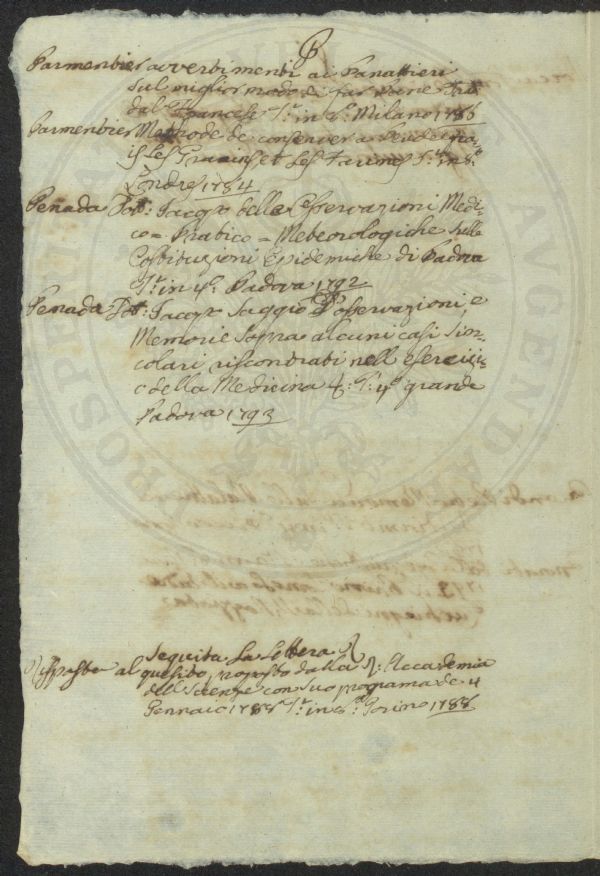 P
Parmentier avvertimenti ai Panattieri
sul miglior modo di far Pane Trad.
dal Francese T.º in 8.º Milano 1786
Parmentier Methode de conserver a peu de
is Les Grains et Les Farines T.º in 8.º
Londres 1784
Penada Dott: Jacopo delle Osservazioni Medi-
co = Pratico = Meteorologiche sulle
Costituzioni Epidemiche di Padova
T.º in 4.º Padova 1792
Penada Dott: Jacopo Saggio D'osservazioni, e
Memorie Sopra alcuni casi Sin-
colari riscontrati nell esercizi-
o della Medicina T.º 4.º grande
Padova 1793
Seguita La Lettera R
Risposte al quesito, proposto dalla R: Accademia
delle Scienze con suo programa de 4
Gennaio 1788 T.º in 8.º Torino 1788